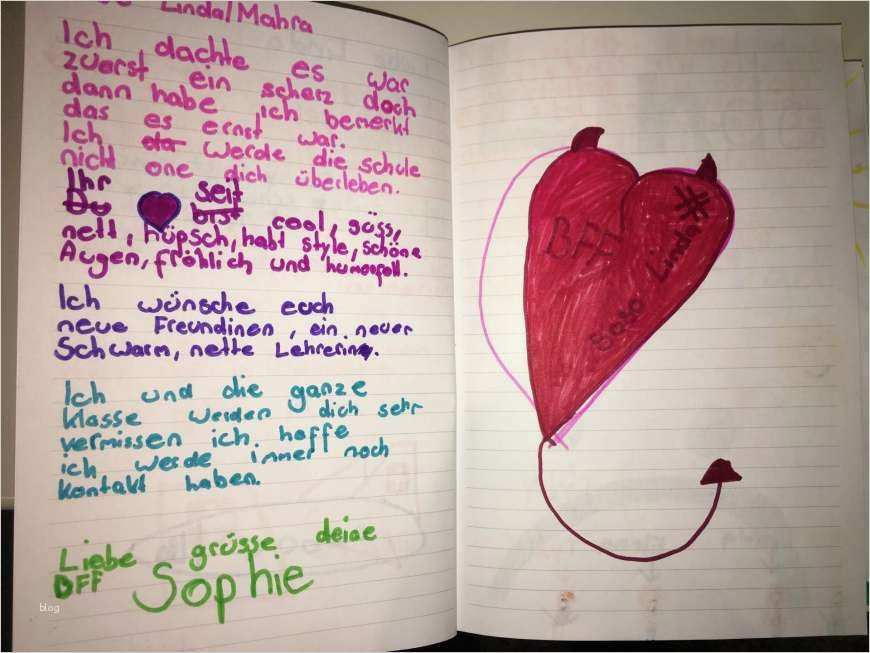 Linda/Mahra
Ich dachte es war
zuerst ein scherz doch
dann habe ich bemerkt
das es ernst war.
Ich werde die schule
nicht one dich überleben.
Ihr seit
Du bist cool, süss,
nett, hüpsch, habt style, schöne
Augen, fröhlich und humorfoll.
Ich wünsche euch
neue Freundinen, ein neuer
Schwarm, nette Lehrerin.
Ich und die ganze
klasse werden dich sehr
vermissen ich hoffe
ich werde immer noch
kontakt haben.
Liebe grüsse deine
BFF Sophie
blog
BFF
#
Soso Linda